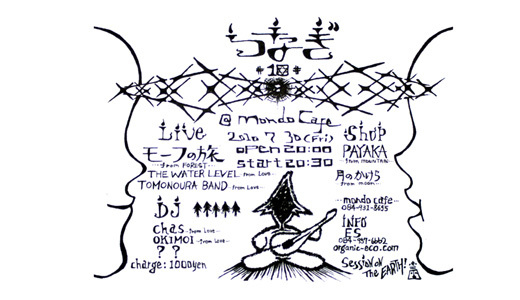 つなぎ
@ mondo Cafe
2010 7 30(Fri)
OPEN 20:00
start 20:30
Live
モーフの旅
from FOREST
THE WATER LEVEL from Love
TOMONOURA BAND from Love
DJ
chas from Love
OKIMOI from Love
? ?
charge: 1000yen
Shop
PAYAKA
from mountain
月のかけら
from moon
mondo cafe
084-931-8655
INFO
ES
organic-eco.com
Session on
The EARTH!